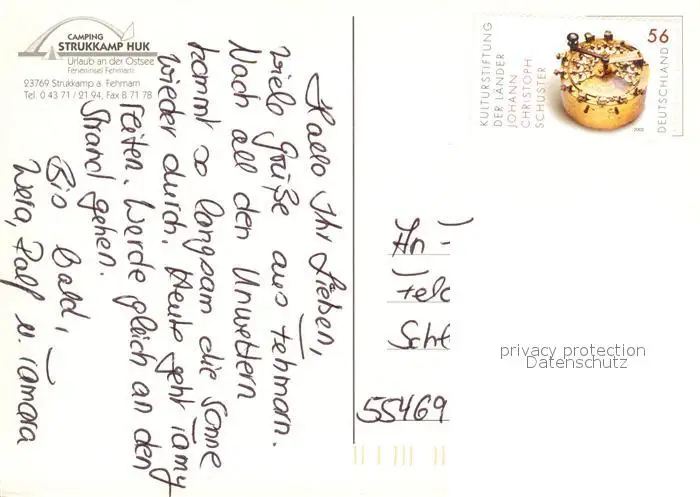 CAMPING
STRUKKAMP HUK
Urlaub an der Ostsee
Ferieninsel Fehmarn
23769 Strukkamp a. Fehmarn
Tel. 0 43 71 / 21 94, Fax 8 71 78
Hallo Ihr Lieben,
viele Grüße aus Fehmarn.
Nach all den Unwettern
kommt so langsam die Sonne
wieder durch. Heute geht Tamy
reiten. Werde gleich an den
Strand gehen.
Bis bald,
Wera, Ralf u. Tamara
KULTURSTIFTUNG
DER LÄNDER
JOHANN
CHRISTOPH
SCHUSTER
56
DEUTSCHLAND
2002
An
55469
privacy protection
Datenschutz